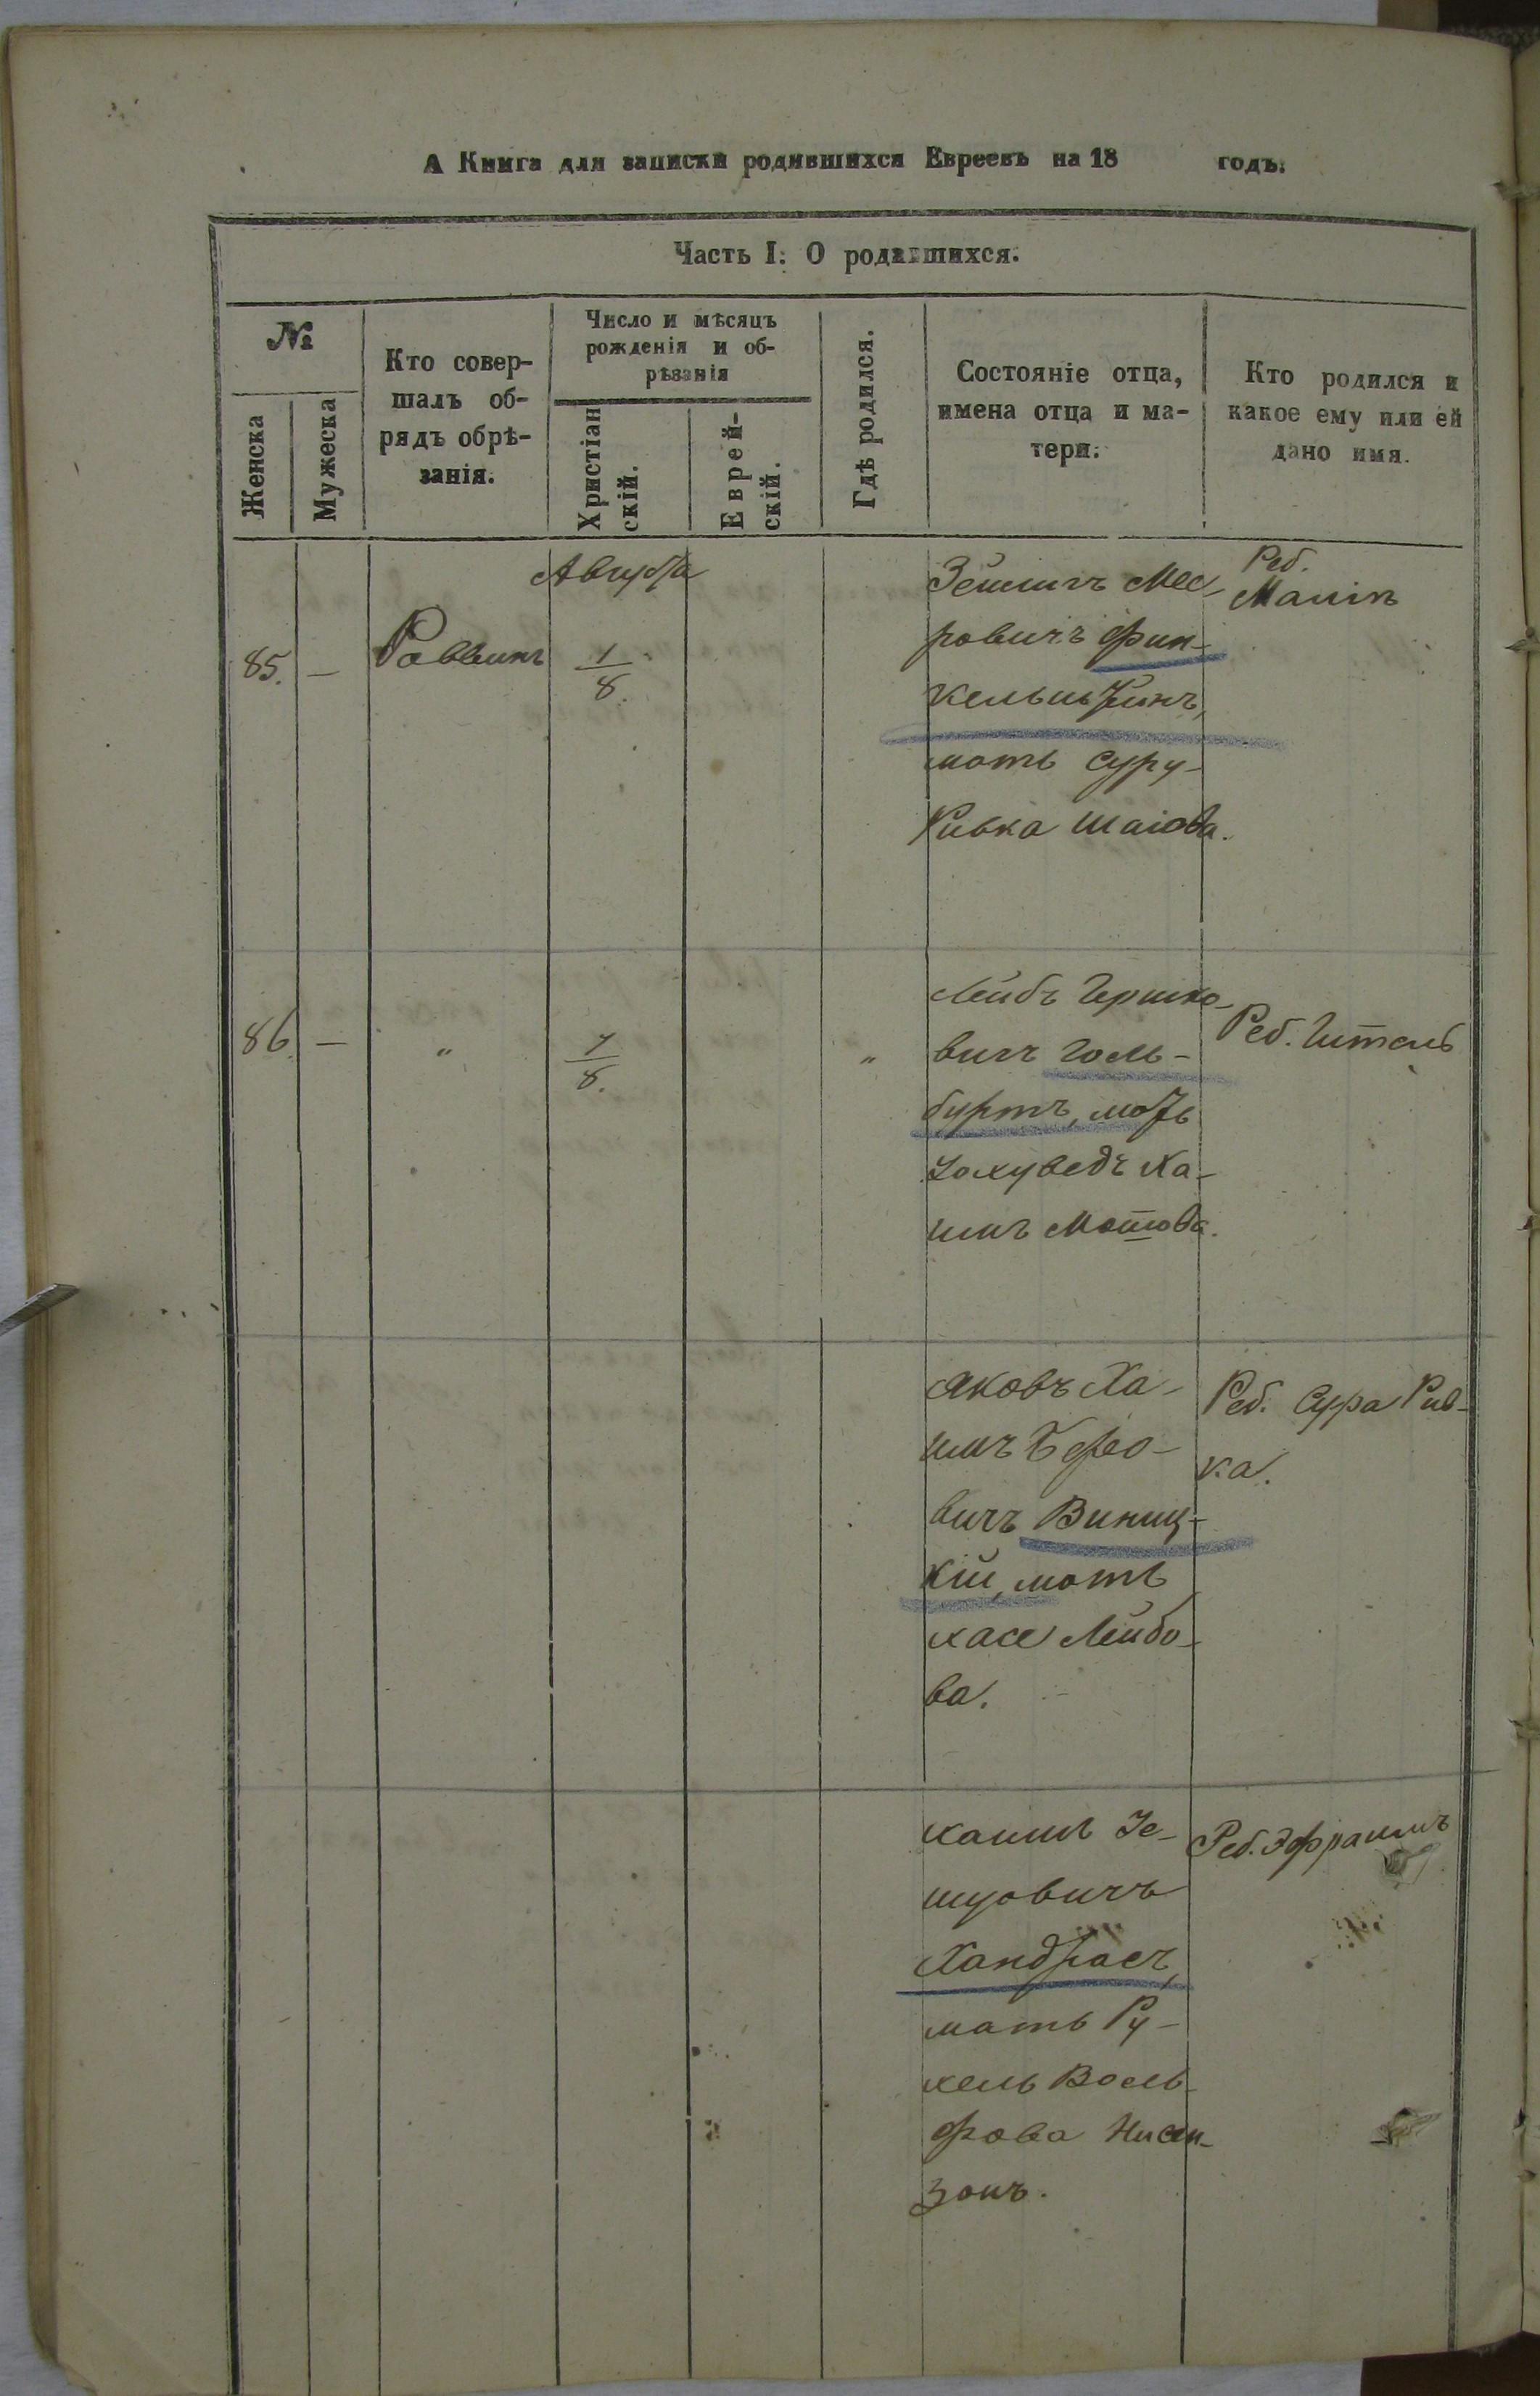 А Книга для записки родившихся Евреевъ на 18 годъ.
Часть I. О родившихся.
№
Женска
Мужеска
Кто совер-
шалъ об-
рядъ обрѣ-
занія.
Число и мѣсяцъ
рожденія и об-
рѣзанія
Христіан
скій.
Еврей-
скій.
Гдѣ родился.
Состояніе отца,
имена отца и ма-
тери.
Кто родился и
какое ему или ей
дано имя.
Августа
85. — Раввинъ 1/8.
Мее-
ровичъ Фин-
кельштейнъ,
мать Сура-
Ривка Шаіова.
Реб.
86. — " 7/8. "
Лейбъ Гершко-
вичъ Голь-
буртъ, мать
Іохуведъ Ха-
имъ Мотова.
Реб. Гитель
Яковъ Ха-
имъ Беро-
вичъ Виниц-
кій, мать
Хасе Лейбо-
ва.
Реб. Сура Рив-
ка.
Хаимъ Іе-
шуовичъ
Хандросъ,
мать Ру-
хель Воль-
фова Нисен-
зонъ.
Реб. Эфраимъ